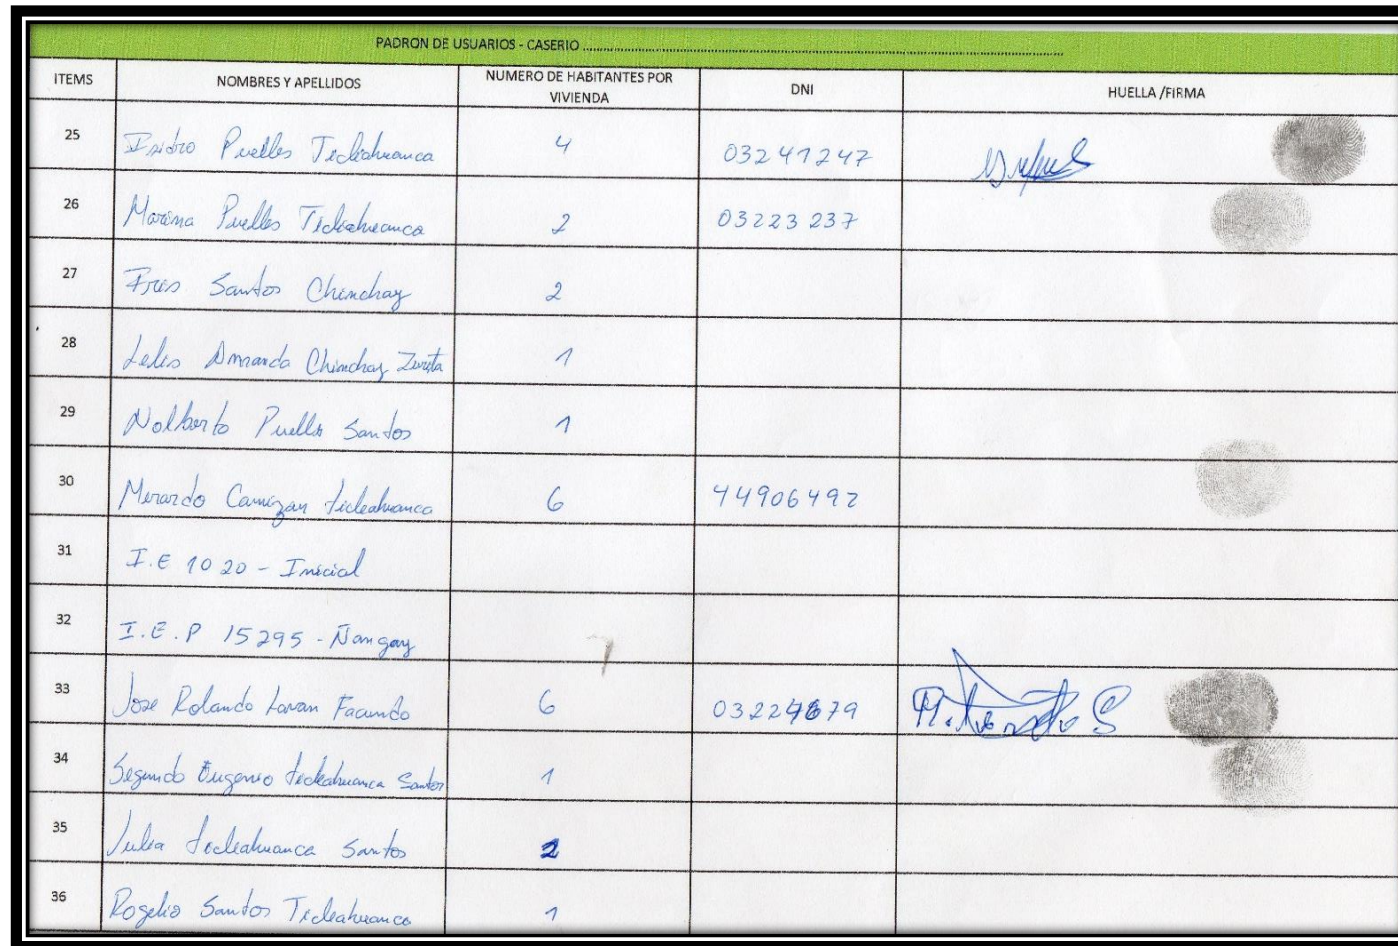 PADRON DE USUARIOS - CASERIO ...........................................................
ITEMS NOMBRES Y APELLIDOS NUMERO DE HABITANTES POR VIVIENDA DNI HUELLA /FIRMA
25 Isidro Puelles Ticliahuanca 4 03241247
26 Marina Puelles Ticliahuanca 2 03223237
27 Santos Chinchay 2
28 Amanda Chinchay Zurita 1
29 Nolberto Puelles Santos 1
30 Merardo Camizan ticleahuanca 6 44906492
31 I.E 1020 - Inicial
32 I.E.P 15295 - Ñangay
33 Jose Rolando Facundo 6
34 Segundo Eugenio ticleahuanca Santos 1
35 Julia ticleahuanca Santos 2
36 Rogelio Santos Ticleahuanca 1